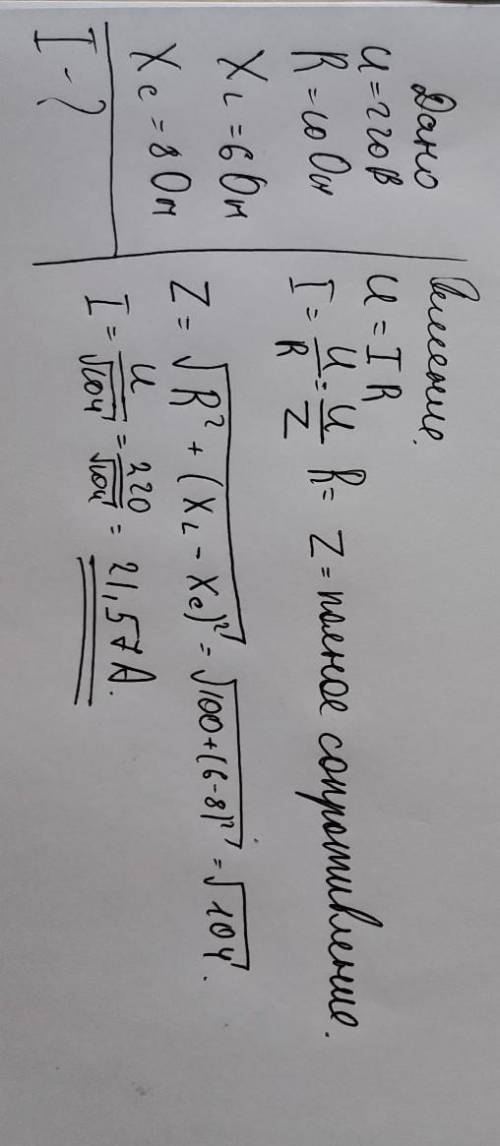 Дано
U = 220 В
R = 10 Ом
X_L = 6 Ом
X_C = 8 Ом
I - ?
Решение.
U = I R
I = U/R = U/Z R = Z = полное сопротивление.
Z = √(R² + (X_L - X_C)²) = √(100 + (6-8)²) = √104.
I = U/√104 = 220/√104 = 21,57 А.